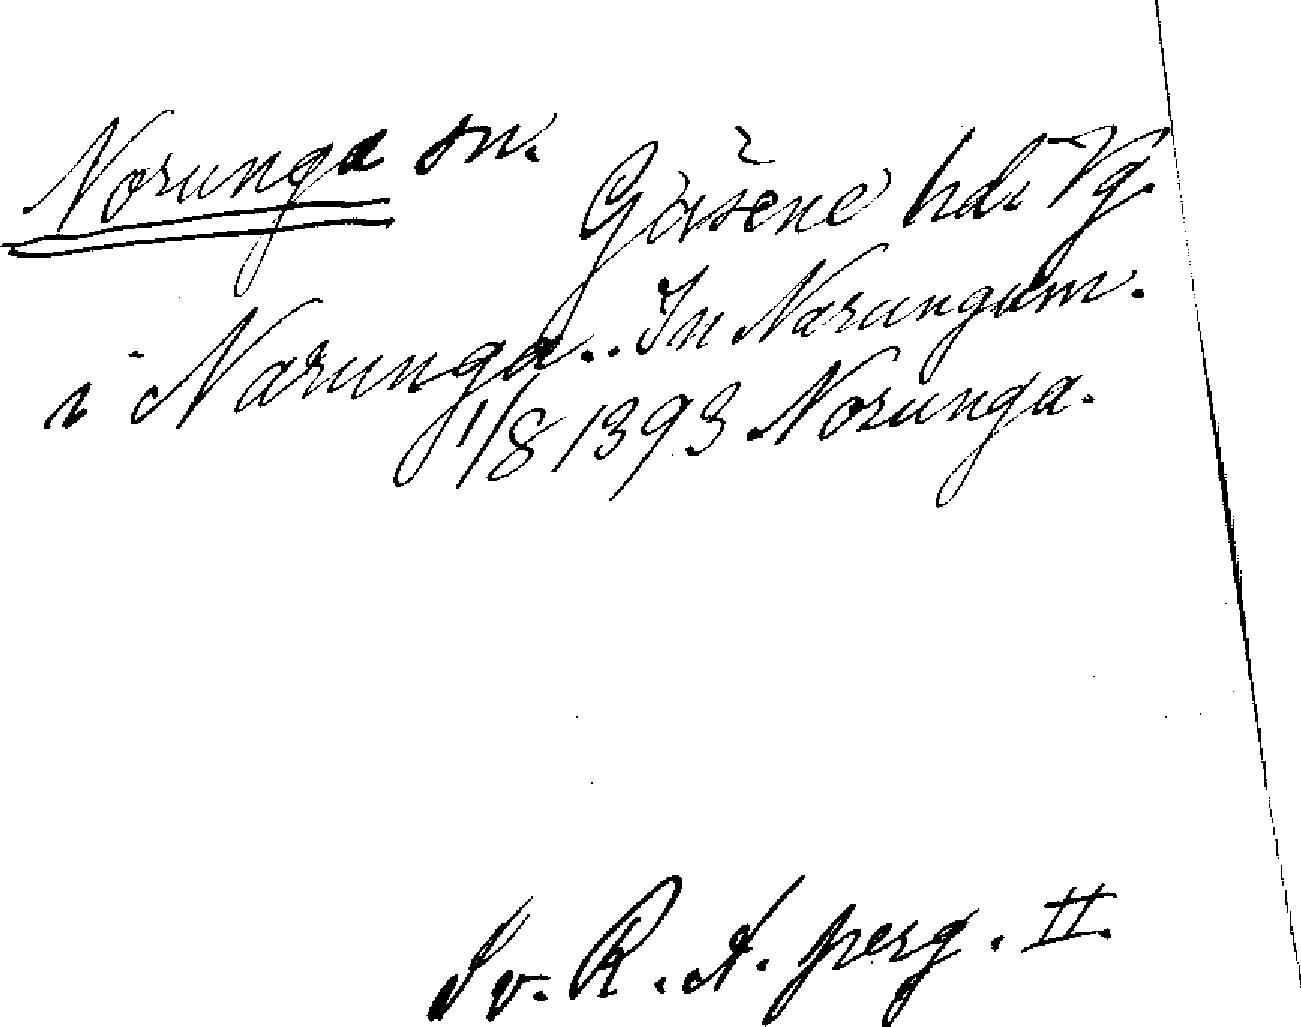 Norunga sn.
Gäsene hd. Vg.
i Narunga.. In Narungum.
1/8 1393 Norunga.
Sv. R. A. perg. II.